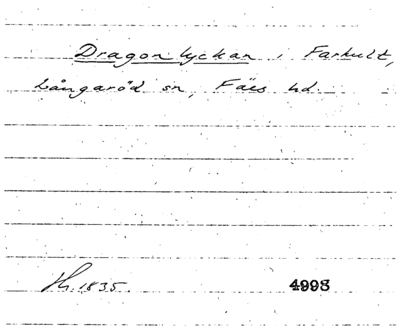 Dragonlyckan i Farhult,
Långaröd sn, Färs hd.
Th. 1835. 4998